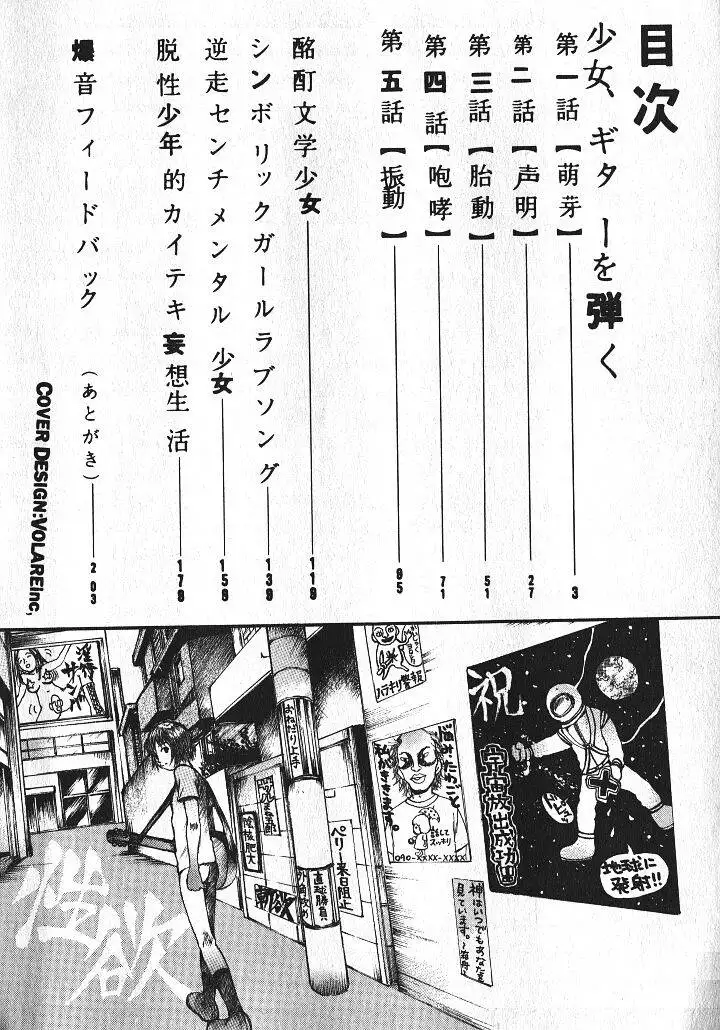 目次
少女、ギターを弾く
第一話【萌芽】 3
第二話【声明】 27
第三話【胎動】 51
第四話【咆哮】 71
第五話【振動】 95
酩酊文学少女 119
シンボリックガールラブソング 139
逆走センチメンタル少女 159
脱性少年的カイテキ妄想生活 179
爆音フィードバック (あとがき) 203
COVER DESIGN:VOLAREinc,
祝
宇宙放出成功
地球に
発射!!
ハラキリ警報
悩みたらごと
私がききます。
話して
スッキリ
090-XXXX-XXXX
神はいつでもあなたを
見ています。
おねだり上手
ペリー来日阻止
直球勝負
陰核肥大
性欲